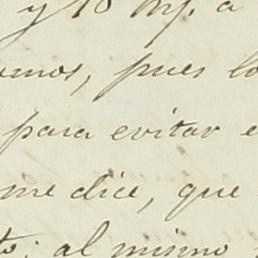 y 10 mp. a
omos, pues lo
para evitar e
me dice, que
to; al mismo